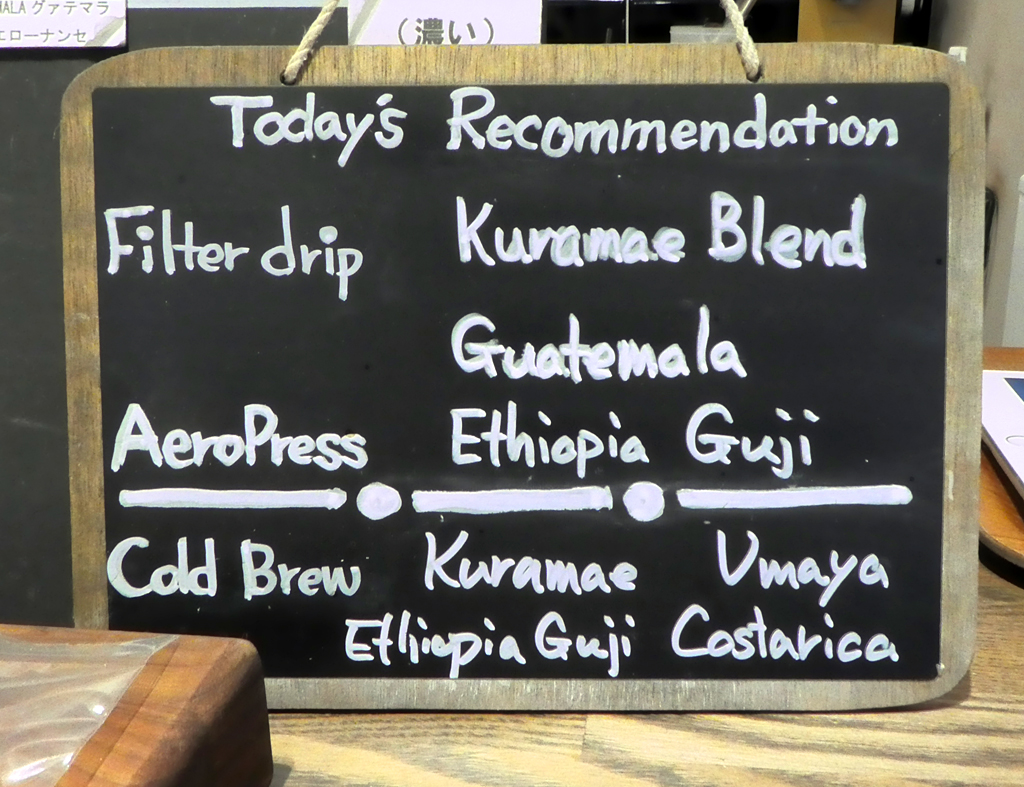 ALA グァテマラ
エローナンセ
(濃い)
Today's Recommendation
Filter drip Kuramae Blend
Guatemala
AeroPress Ethiopia Guji
Cold Brew Kuramae Umaya
Ethiopia Guji Costarica